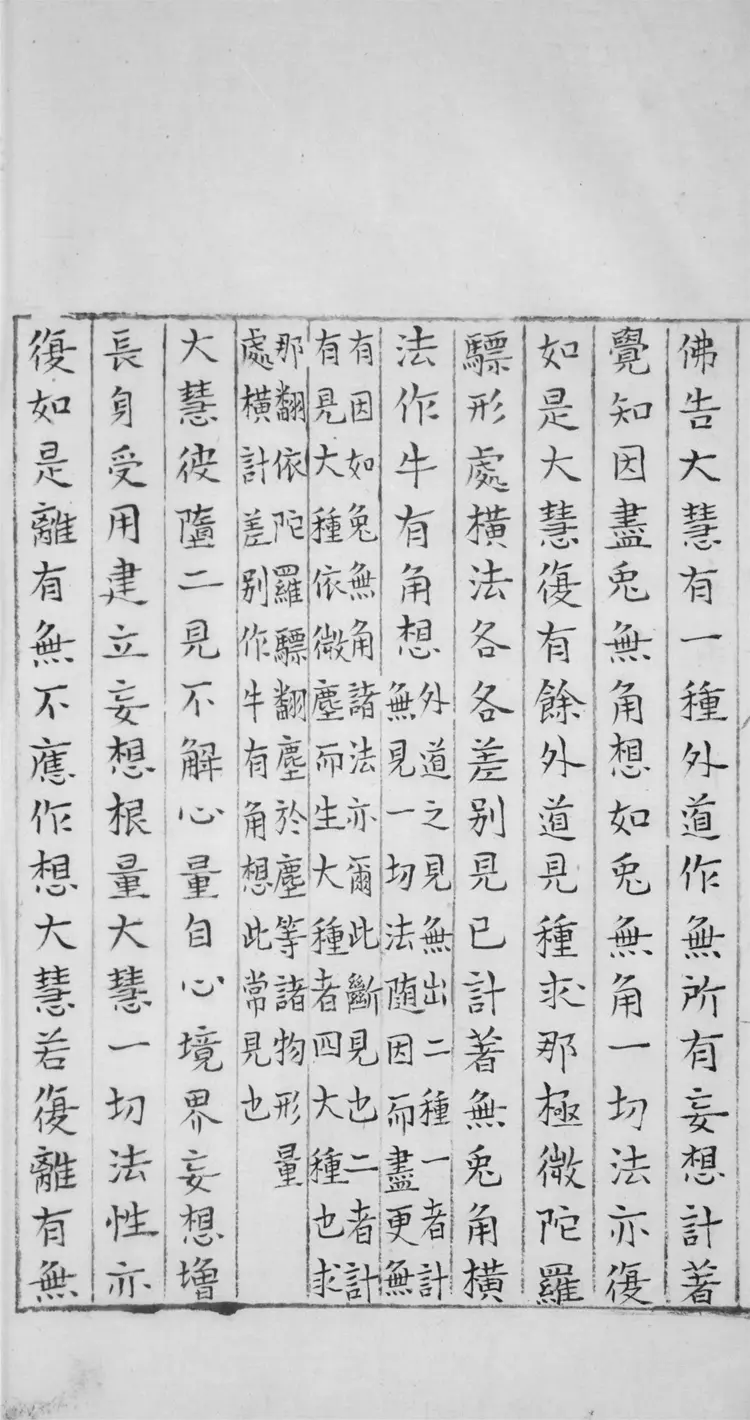 佛告大慧有一種外道作無所有妄想計著
覺知因盡兎無角想如兎無角一切法亦復
如是大慧復有餘外道見種求那極微陀羅
驃形處橫法各各差别見已計著無兎角橫
法作牛有角想
外道之見無出二種一者計
無見一切法随因而盡更無
有因如兔無角諸法亦爾此斷見也二者計
有見大種依微塵而生大種者四大種也求
那翻依陀羅驃翻塵於塵等諸物形量
處橫計差别作牛有角想此常見也
大慧彼墮二見不解心量自心境界妄想增
長身受用建立妄想根量大慧一切法性亦
復如是離有無不應作想大慧若復離有無